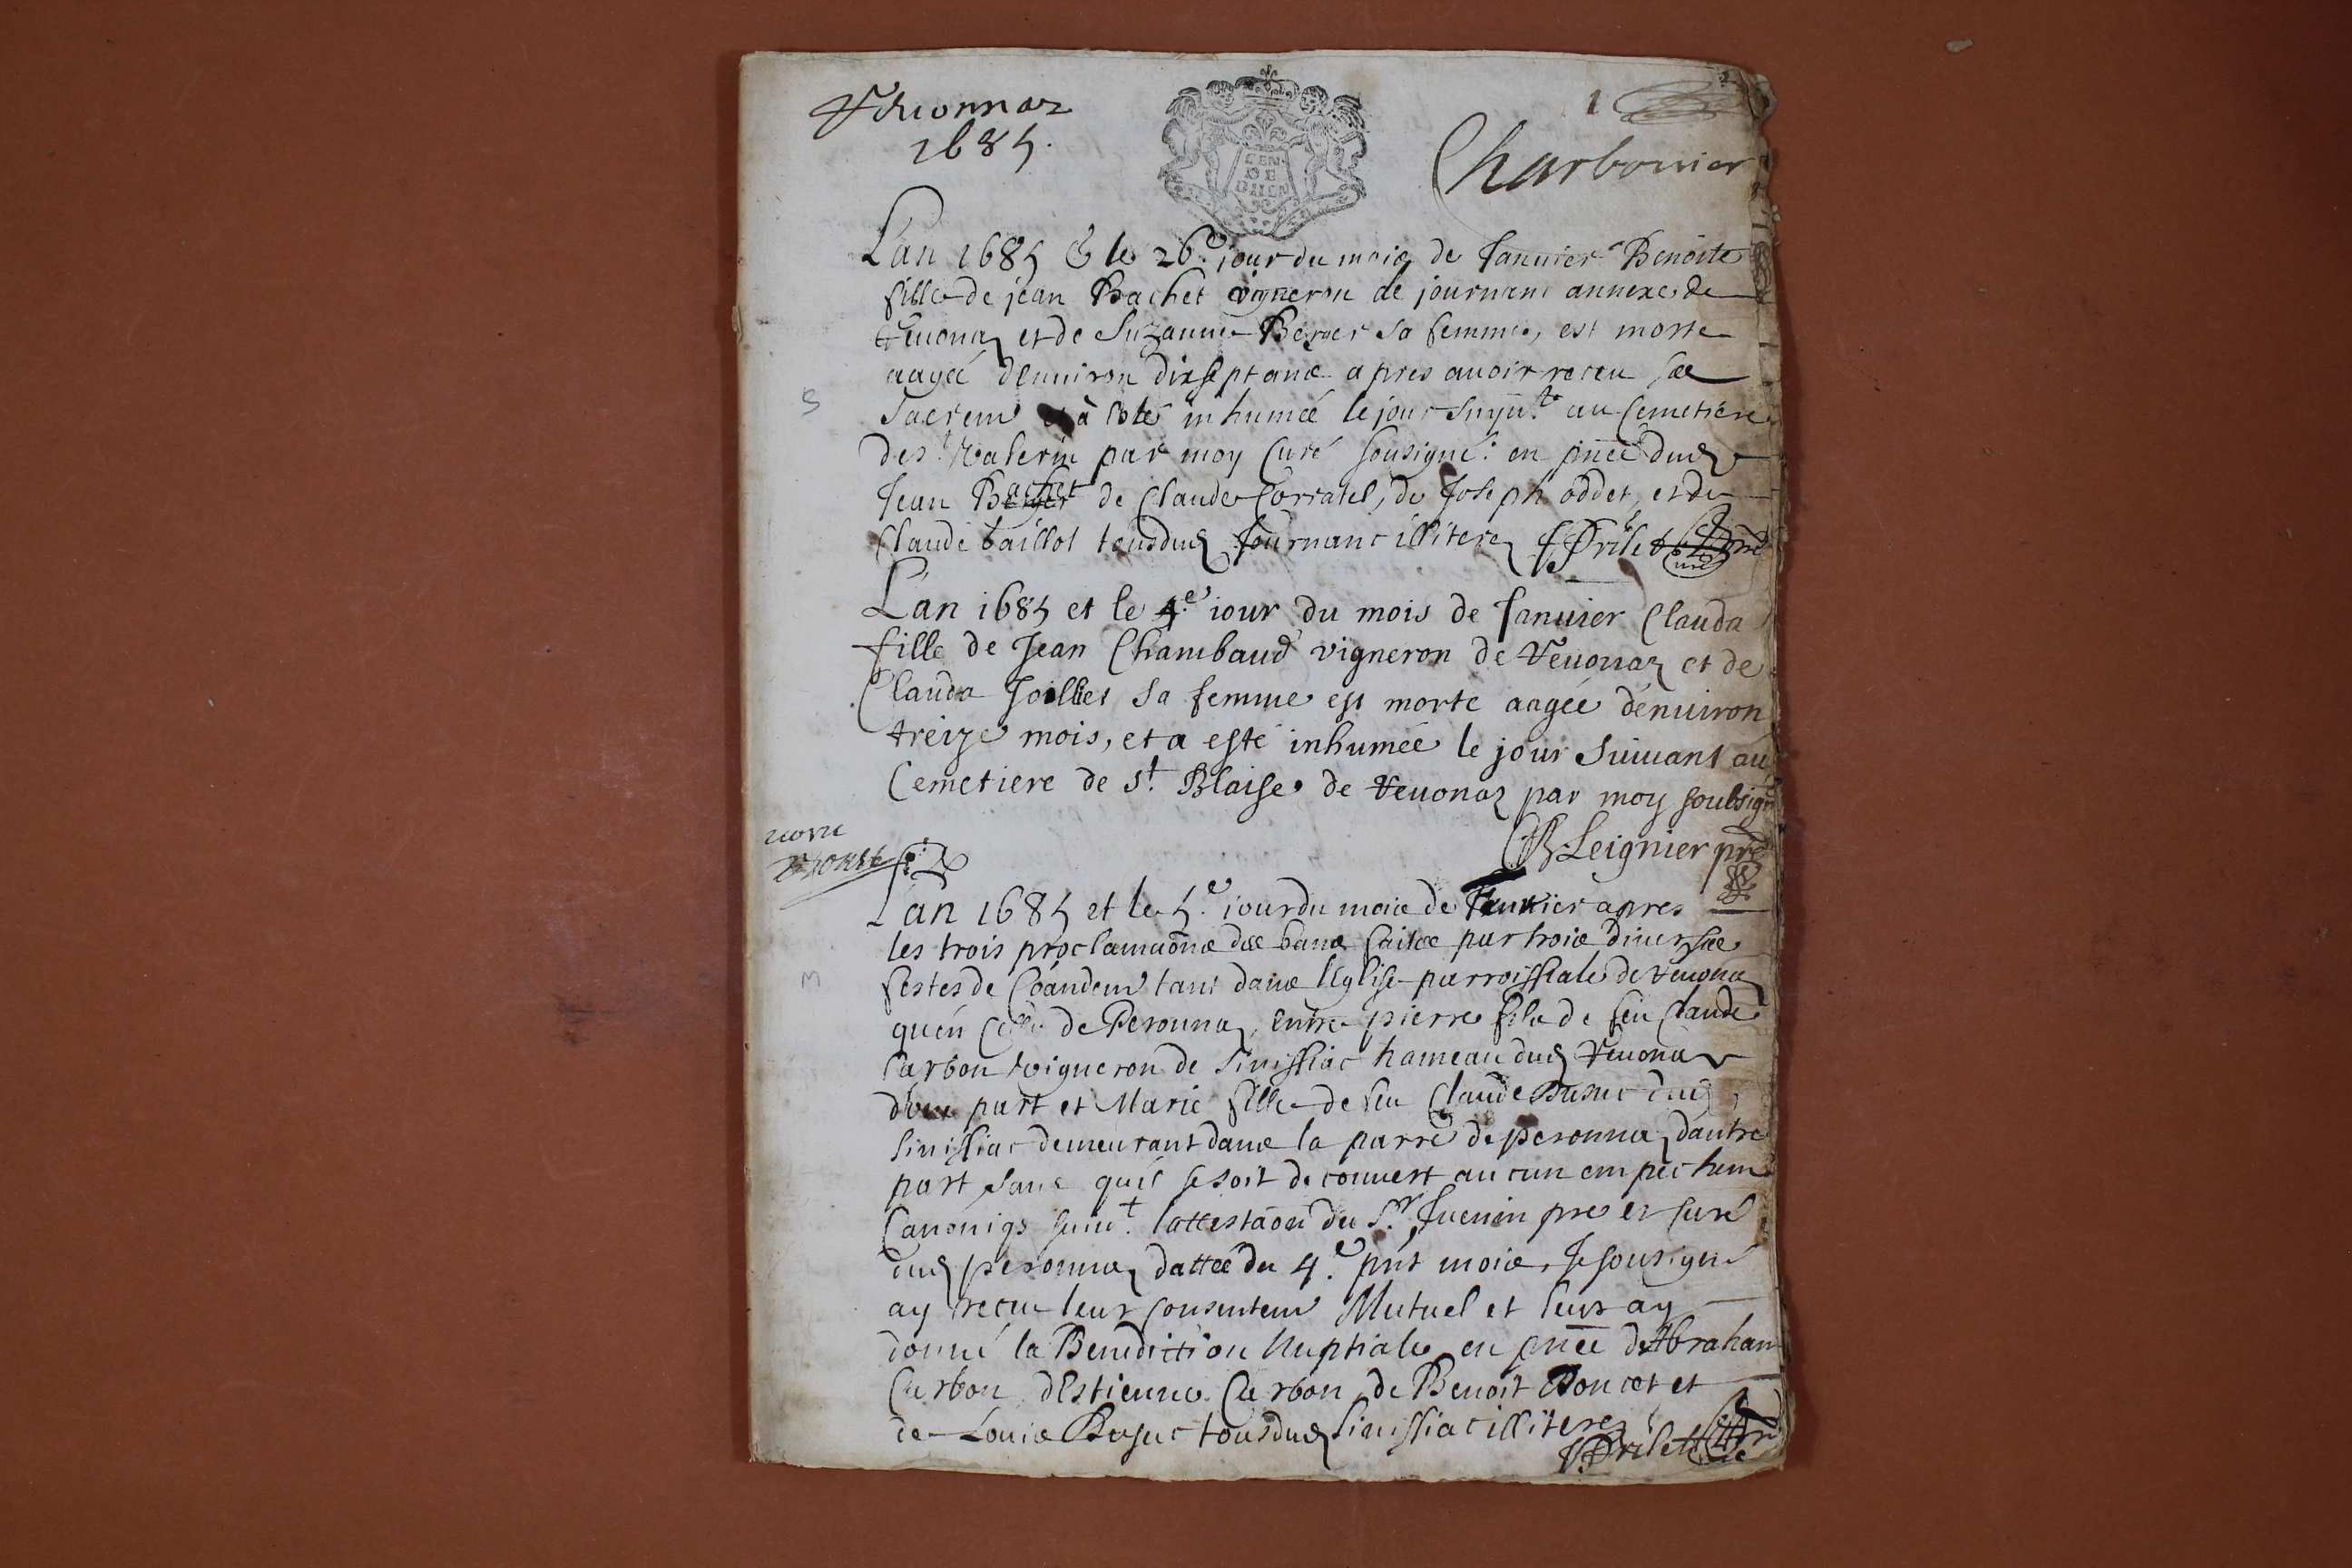 1
1685.
GEN.
DE
Charbonier
L'an 1685 & le 26e. jour du mois de Januier Benoite
fille de jean Bachet vigneron de journans annexe de
veuonaz et de Suzanne Berger sa femme, est morte
aagée d'enuiron dixsept ans apres auoir receu ses
Sacrem à esté inhumée le jour au Cemetiere
des.t Valerin par moy Curé sousigné: en pñce dud
Jean Bachet de Claude Corratel, de Joseph oddet, et de
Claude baillot tousdud Journans illiterez
L'an 1685 et le 4e. iour du mois de Januier Clauda
fille de Jean Chambaud vigneron de Veuonaz et de
Clauda Joillet sa femme est morte aagée d'enuiron
treize mois, et a esté inhumée le jour Suiuant au
Cemetiere de St. Blaise de Veuonaz par moy soubsigné
Leignier pre
L'an 1685 et le 5e. jour du mois de apres
les trois proclamaõns des bans faites par trois diuerses
festes de Coandem tant dans l'eglise parroissiale de veuonaz
qu'en celle de Peronnaz, entre pierre fils de feu Claude
Carbon vigneron de Sinissiac hameau dud Veuonaz
d'une part et Marie fille de feu Claude dud
Sinissiac demeurant dans la parre de peronnaz d'autre
part sans quil se soit decouuert aucun empechem
Canoniqs suiut. l'attestaõn du Sr. Juenin pre et curé
dud peronnaz dattée du 4e. pñt mois, Je sousigné
ay receu leur consentem Mutuel et leur ay
donné la Benediction Nuptiale en pñce d'Abraham
Carbon, d'Estienne Carbon, de Benoit Poncet et
de Louis tousdud Sinissiac illiterez